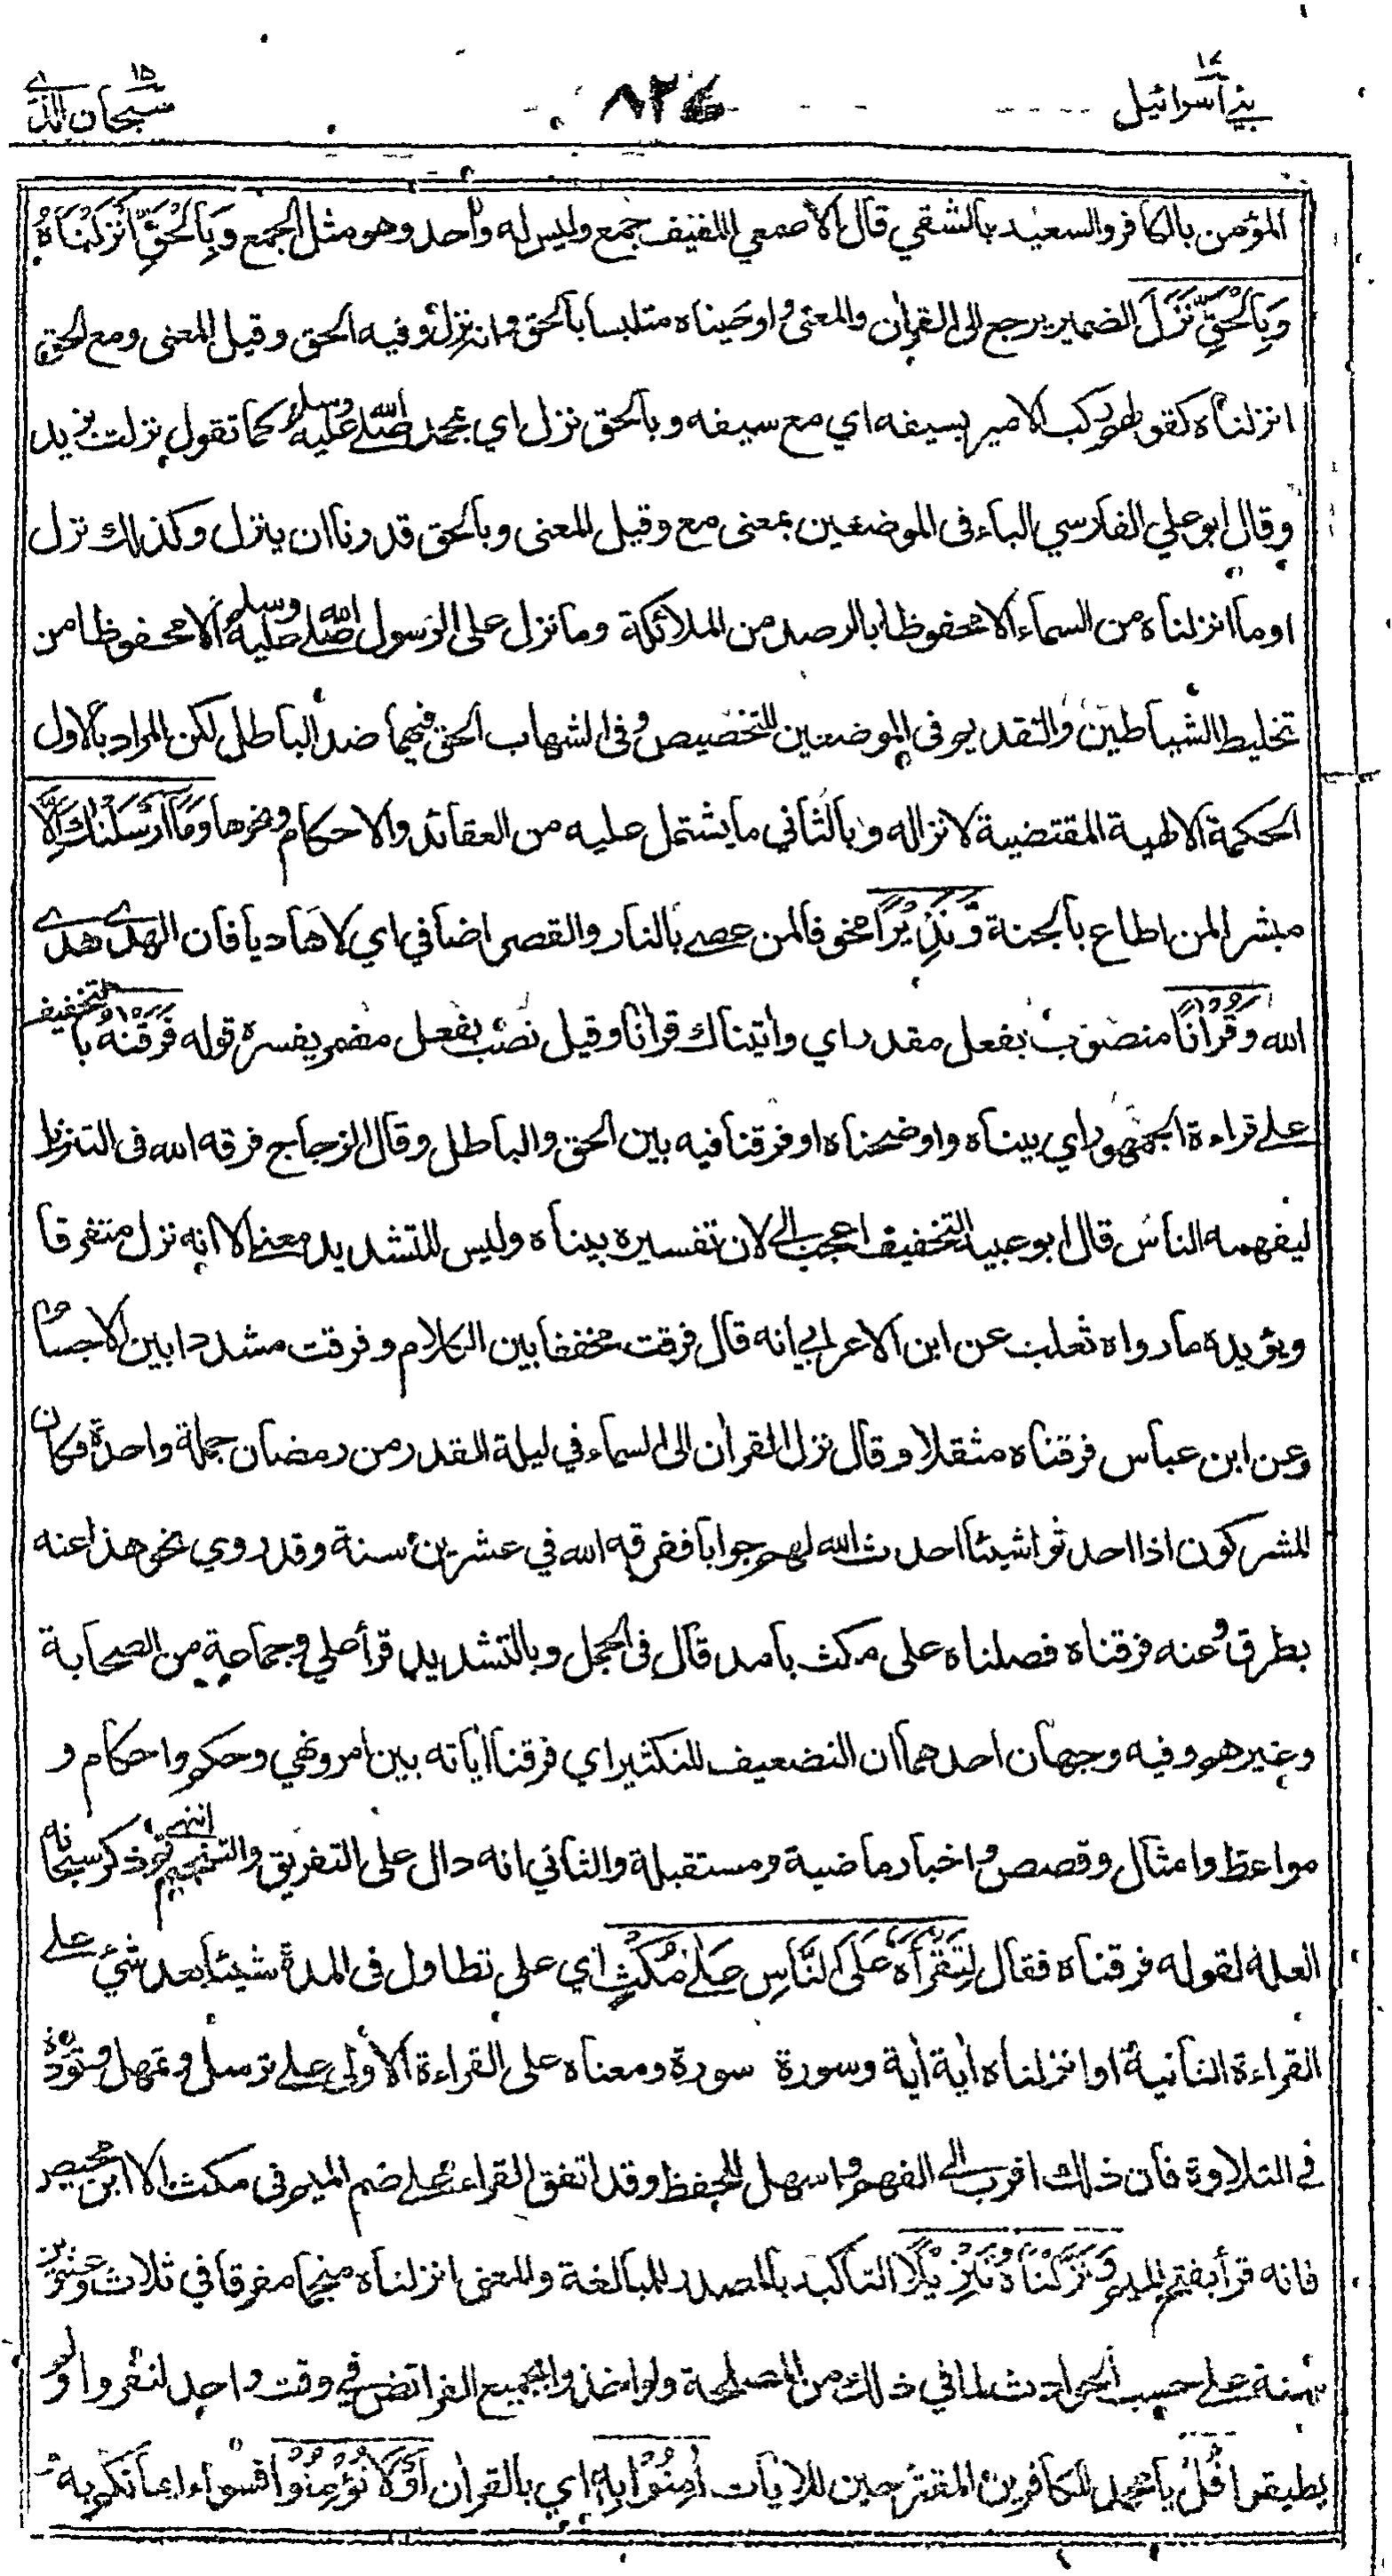 بني اسرائيل ١٧
٨٢٤
سبحان الذي ١٥
المؤمن بالكافر والسعيد بالشقي قال الاصمعي اللفيف جمع وليس له واحد وهو مثل الجمع وَبِالْحَقِّ اَنْزَلْنَاهُ
وَبِالْحَقِّ نَزَلَ الضمير يرجع الى القرآن والمعنى واوحيناه متلبسا بالحق وانه نزل وفيه الحق وقيل المعنى ومع الحق
انزلناه كقولهم ركب الامير بسيفه اي مع سيفه وبالحق نزل اي محمد صلى الله عليه وسلم كما تقول نزلت بزيد
وقال ابو علي الفارسي الباء في الموضعين بمعنى مع وقيل المعنى وبالحق قدرنا ان ينزل وكذلك نزل
او ما انزلناه من السماء الا محفوظا بالرصد من الملائكة وما نزل على الرسول صلى الله عليه وسلم الا محفوظا من
تخليط الشياطين والتقديم في الموضعين للتخصيص وفي الشهاب الحق فيهما ضد الباطل لكن المراد بالاول
الحكمة الالهية المقتضية لانزاله وبالثاني ما يشتمل عليه من العقائد والاحكام ونحوها وَمَا اَرْسَلْنٰكَ اِلَّا
مبشرا لمن اطاع بالجنة وَّنَذِيْرًا مخوفا لمن عصى بالنار والقصر اضافي اي لا هاديا فان الهدى هدى
الله وَقُرْاٰنًا منصوب بفعل مقدر اي واتيناك قرانا وقيل نصب بفعل مضمر يفسره قوله فَرَقْنٰهُ بالتخفيف
على قراءة الجمهور اي بيناه واوضحناه او فرقنا فيه بين الحق والباطل وقال الزجاج فرقه الله في التنزيل
ليفهمه الناس قال ابو عبيد التخفيف اعجب الي لان تفسيره بيناه وليس للتشديد معنى الا انه نزل متفرقا
ويؤيده ما رواه ثعلب عن ابن الاعرابي انه قال فرقت مخففا بين الكلام وفرقت مشددا بين الاجسام
وعن ابن عباس فرقناه مثقلا وقال نزل القرآن الى السماء في ليلة القدر من رمضان جملة واحدة فكان
المشركون اذا احدثوا شيئا احدث الله لهم جوابا ففرقه الله في عشرين سنة وقد روي نحو هذا عنه
بطرق وعنه فرقناه فصلناه على مكث بامد قال في الجمل وبالتشديد قرأ علي وجماعة من الصحابة
وغيرهم وفيه وجهان احدهما ان التضعيف للتكثير اي فرقنا اياته بين امر ونهي وحكم واحكام و
مواعظ وامثال وقصص واخبار ماضية ومستقبلة والثاني انه دال على التفريق والتنجيم انتهى ثم ذكر سبحانه
العلة لقوله فرقناه فقال لِتَقْرَأَهُ عَلَى النَّاسِ عَلٰى مُكْثٍ اي على تطاول في المدة شيئا بعد شيء على
القراءة الثانية او انزلناه اية اية وسورة سورة ومعناه على القراءة الاولى على ترسل وتمهل وتؤدة
في التلاوة فان ذلك اقرب الى الفهم واسهل للحفظ وقد اتفق القراء على ضم الميم في مكث الا ابن محيصن
فانه قرأ بفتح الميم وَنَزَّلْنَاهُ تَنْزِيْلًا التاكيد بالمصدر للمبالغة والمعنى انزلناه منجما مفرقا في ثلاث وعشرين
سنة على حسب الحوادث لما في ذلك من المصلحة ولو اخذوا بجميع الفرائض في وقت واحد لنفروا ولم
يطيقوا قُلْ يا محمد للكافرين المقترحين للايات اٰمِنُوْا بِهٖ اي بالقران اَوْ لَا تُؤْمِنُوْا فسواء ايمانكم به